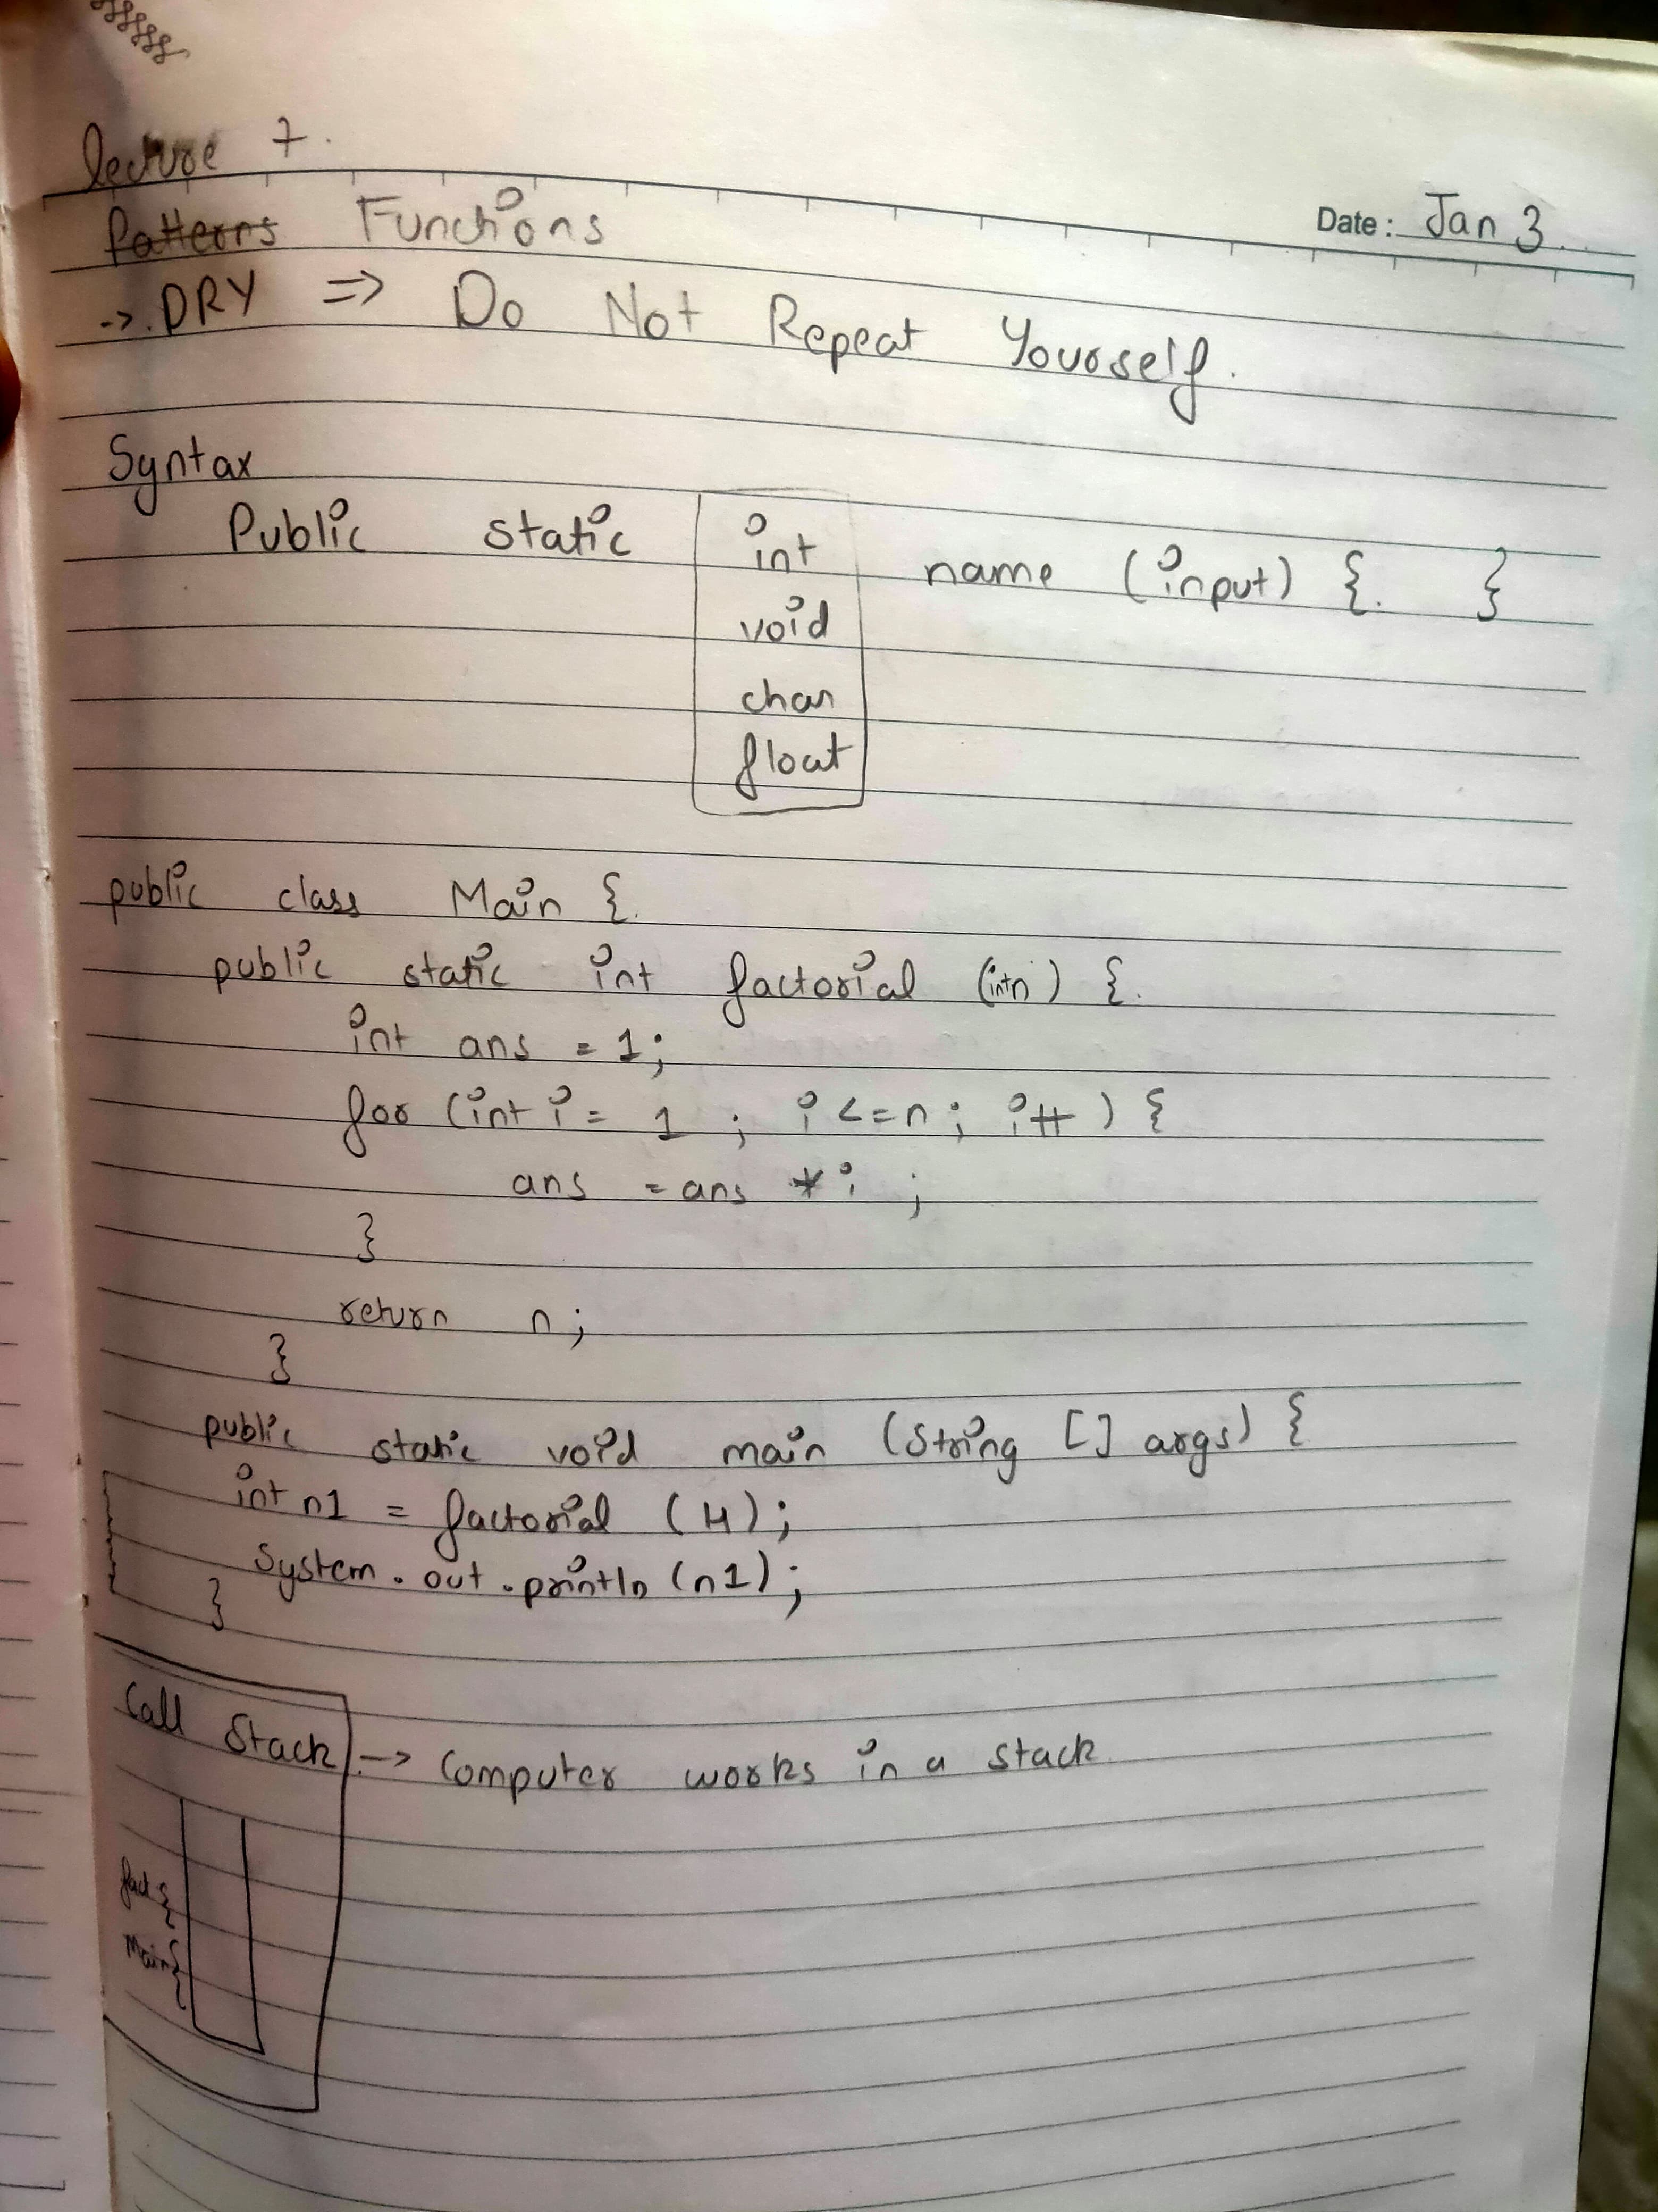 lecture 7.
Patterns Functions
Date: Jan 3.
-> DRY => Do Not Repeat Yourself.
Syntax
Public static int name (input) { }
void
char
float
public class Main {
public static int factorial (int n) {
int ans = 1;
for (int i = 1 ; i <= n ; i++ ) {
ans = ans * i ;
}
return n ;
}
public static void main (String [] args) {
int n1 = factorial (4);
System.out.println (n1);
}
Call Stack -> Computer works in a stack
fact {
Main {